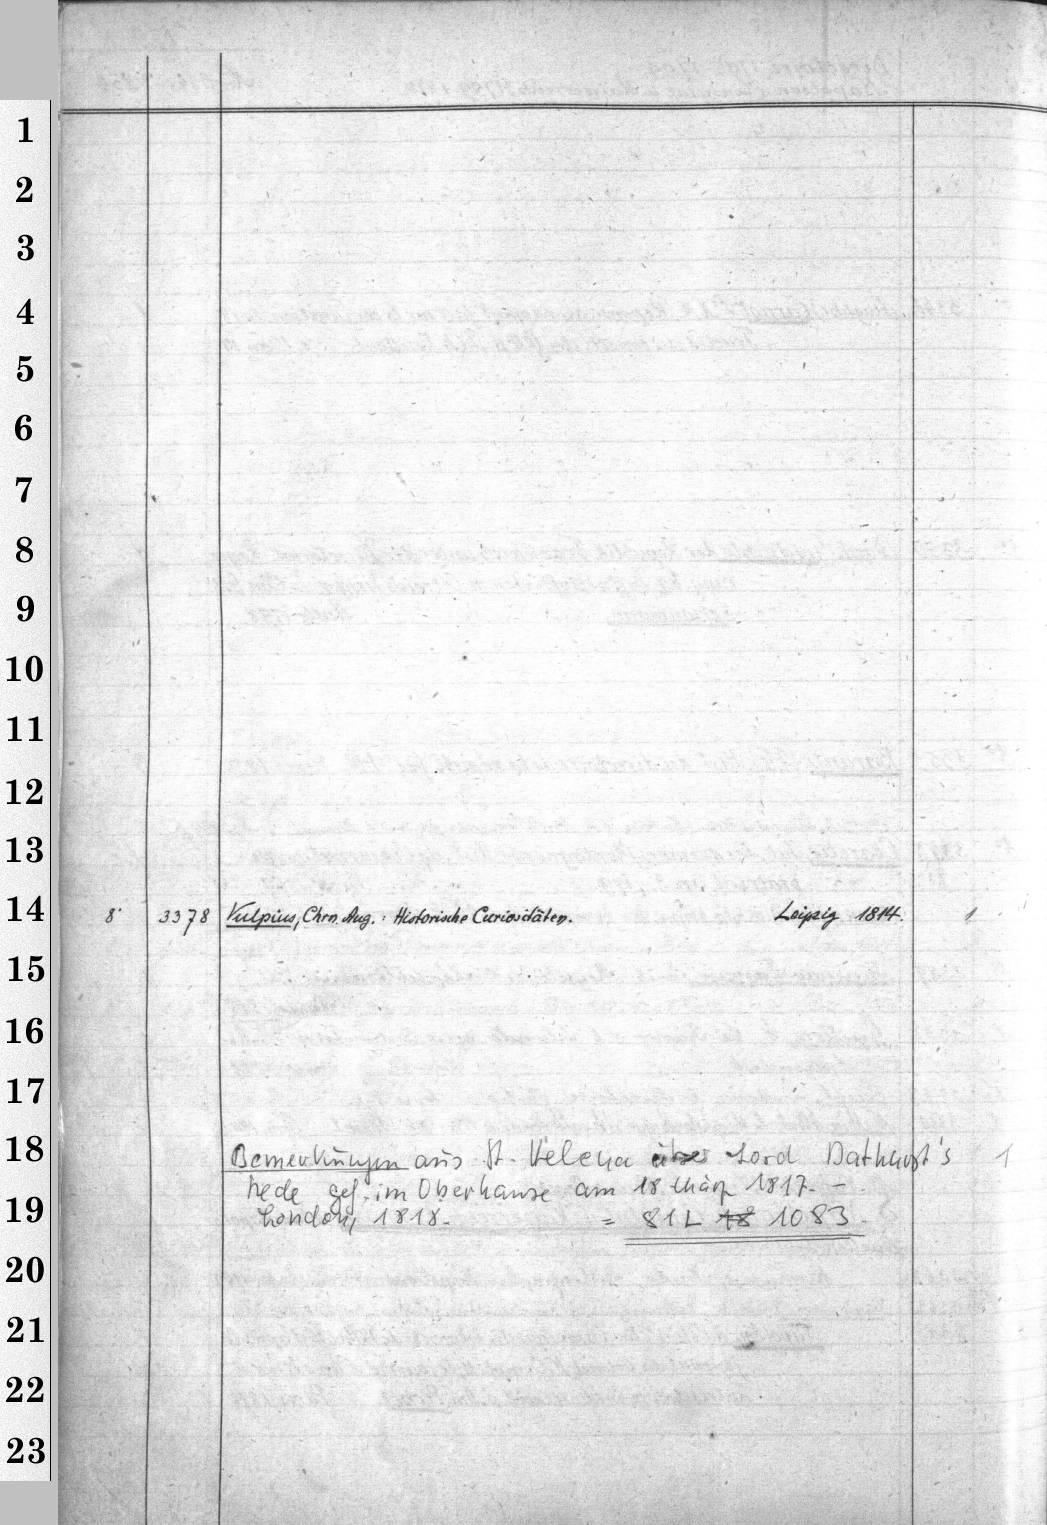 1
2
3
4
5
6
7
8
9
10
11
12
13
14
8° 3378 Vulpius, Chrn. Aug.: Historische Curiositäten. Leipzig 1814. 1
15
16
17
18
Bemerkungen aus St. Helena über Lord Bathurst's 1
Rede geh. im Oberhause am 18 März 1817. –
19
London, 1818. = 81 L 18 1083.
20
21
22
23